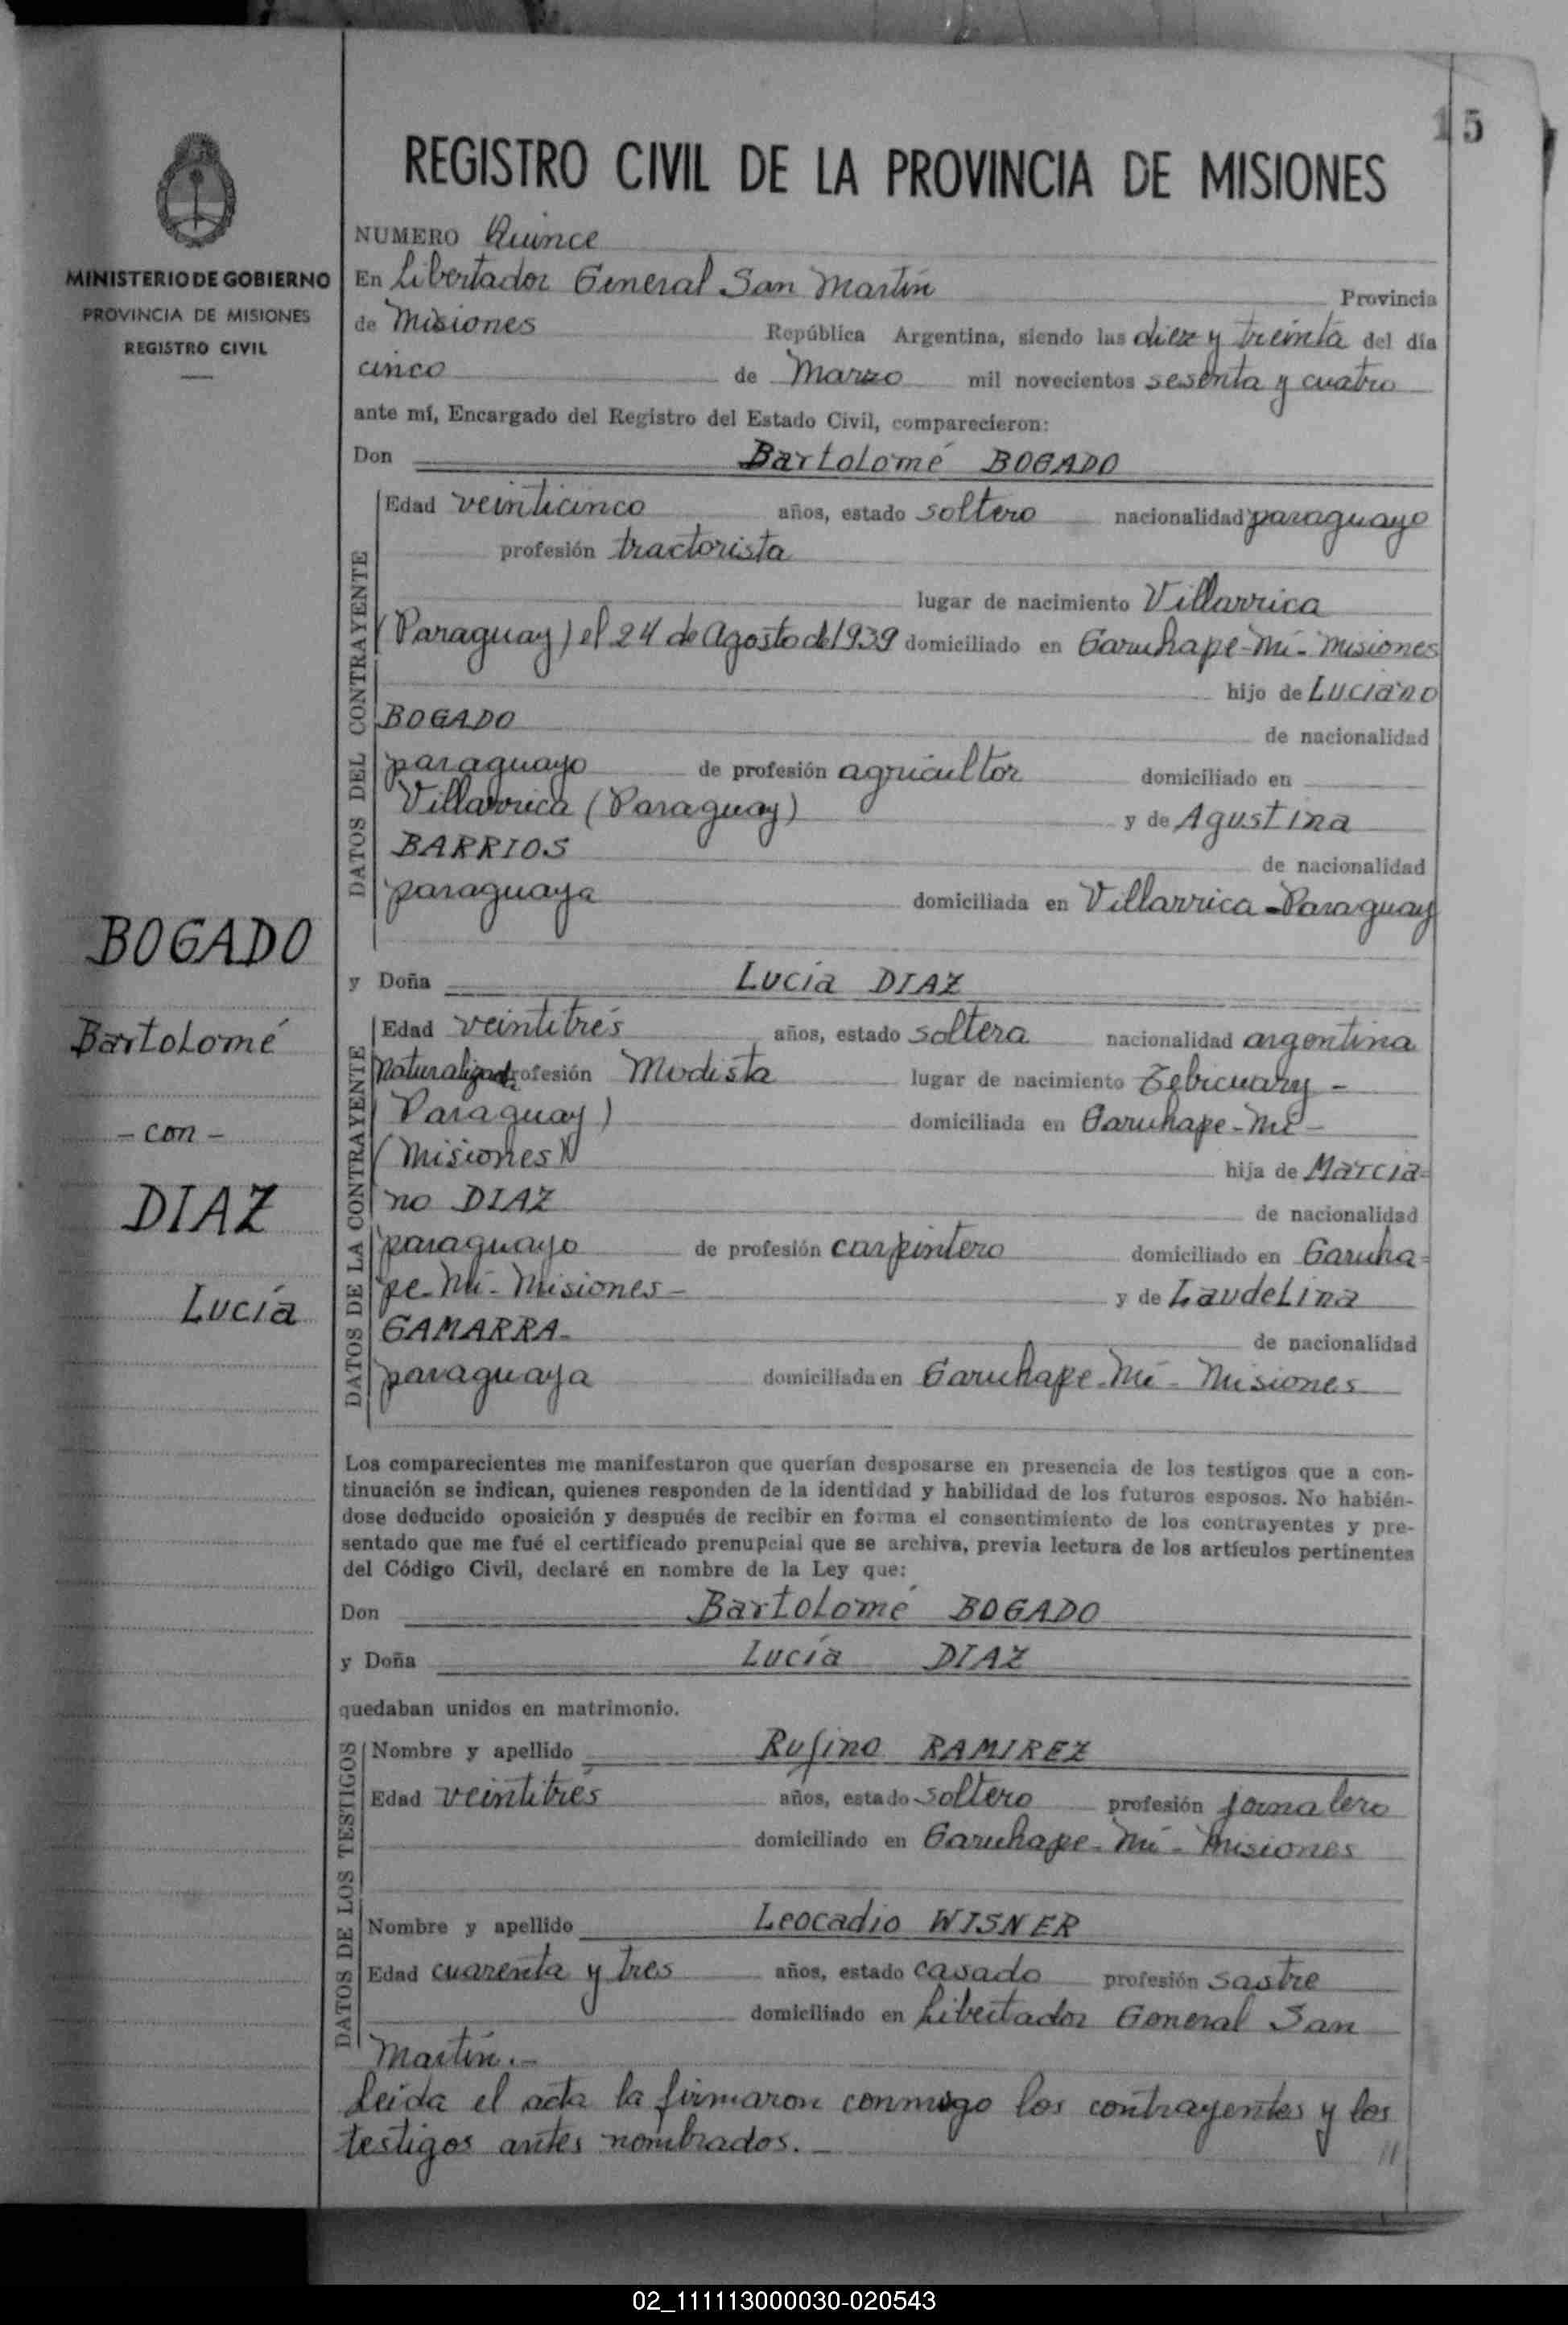 15
REGISTRO CIVIL DE LA PROVINCIA DE MISIONES
MINISTERIO DE GOBIERNO
PROVINCIA DE MISIONES
REGISTRO CIVIL
NUMERO Quince
En Libertador General San Martín Provincia
de Misiones República Argentina, siendo las diez y treinta del día
cinco de Marzo mil novecientos sesenta y cuatro
ante mí, Encargado del Registro del Estado Civil, comparecieron:
Don Bartolomé BOGADO
DATOS DEL CONTRAYENTE
Edad veinticinco años, estado soltero nacionalidad paraguayo
profesión tractorista
lugar de nacimiento Villarrica
(Paraguay) el 24 de Agosto de 1939 domiciliado en Garuhape-Mí-Misiones
hijo de Luciano
BOGADO de nacionalidad
paraguayo de profesión agricultor domiciliado en
Villarrica (Paraguay) y de Agustina
BARRIOS de nacionalidad
paraguaya domiciliada en Villarrica-Paraguay
BOGADO
Bartolomé
- con -
DIAZ
Lucía
y Doña Lucía DIAZ
DATOS DE LA CONTRAYENTE
Edad veintitrés años, estado soltera nacionalidad argentina
naturalizada profesión Modista lugar de nacimiento Tebicuary -
(Paraguay) domiciliada en Garuhape-Mí-
(Misiones) hija de Marcia=
no DIAZ de nacionalidad
paraguayo de profesión carpintero domiciliado en Garuha=
pe-Mí-Misiones- y de Laudelina
GAMARRA- de nacionalidad
paraguaya domiciliada en Garuhape-Mí-Misiones
Los comparecientes me manifestaron que querían desposarse en presencia de los testigos que a con-
tinuación se indican, quienes responden de la identidad y habilidad de los futuros esposos. No habién-
dose deducido oposición y después de recibir en forma el consentimiento de los contrayentes y pre-
sentado que me fué el certificado prenupcial que se archiva, previa lectura de los artículos pertinentes
del Código Civil, declaré en nombre de la Ley que:
Don Bartolomé BOGADO
y Doña Lucía DIAZ
quedaban unidos en matrimonio.
DATOS DE LOS TESTIGOS
Nombre y apellido Rufino RAMIREZ
Edad veintitrés años, estado soltero profesión jornalero
domiciliado en Garuhape-Mí-Misiones
Nombre y apellido Leocadio WISNER
Edad cuarenta y tres años, estado casado profesión sastre
domiciliado en Libertador General San
Martín.-
Leída el acta la firmaron conmigo los contrayentes y los
testigos antes nombrados.- //
02_111113000030-020543